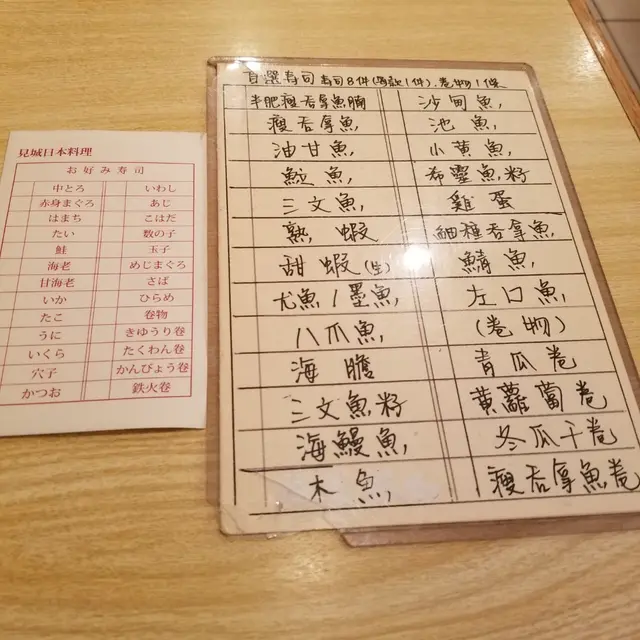 見城日本料理
お好み寿司
中とろ いわし
赤身まぐろ あじ
はまち こはだ
たい 数の子
鮭 玉子
海老 めじまぐろ
甘海老 さば
いか ひらめ
たこ 巻物
うに きゆうり巻
いくら たくわん巻
穴子 かんぴょう巻
かつお 鉄火巻
自選寿司 寿司8件(每款1件),卷物1條
半肥瘦吞拿魚腩 沙甸魚,
瘦吞拿魚, 池魚,
油甘魚, 小黄魚,
鯛魚, 希靈魚籽
三文魚, 雞蛋
熟蝦 細種吞拿魚,
甜蝦(生) 鯖魚,
尤魚/墨魚, 左口魚,
八爪魚, (卷物)
海膽 青瓜卷
三文魚籽 黄蘿蔔卷
海鰻魚, 冬瓜干卷
木魚, 瘦吞拿魚卷